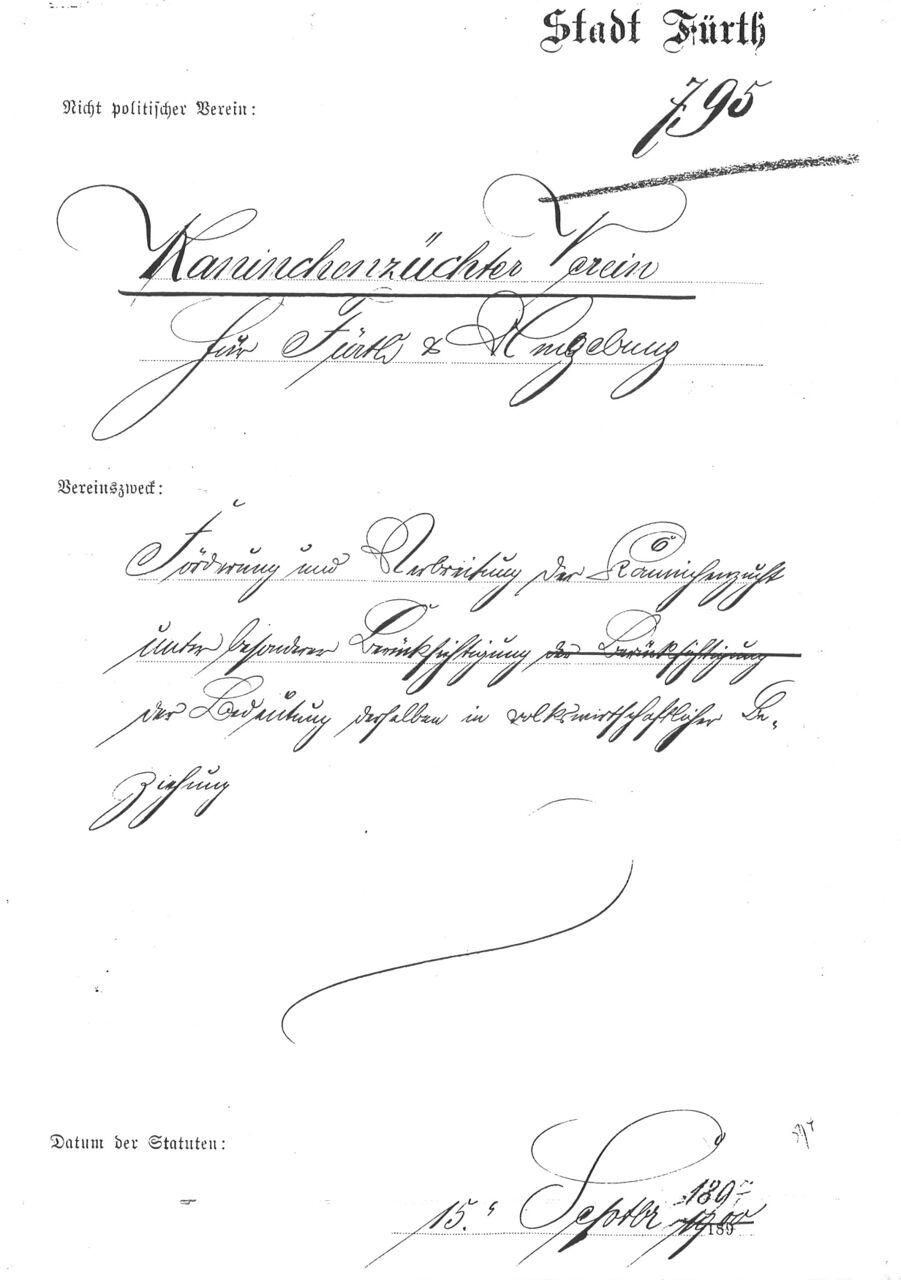 Stadt Fürth
795
Nicht politischer Verein:
Kaninchenzüchter Verein
für Fürth & Umgebung
Vereinszweck:
Förderung und Verbreitung der Kaninchenzucht
unter besonderer Berücksichtigung der Berücksichtigung
der Bedeutung derselben in volkswirtschaftlicher Be-
ziehung
Datum der Statuten:
15. Septbr 1900
189